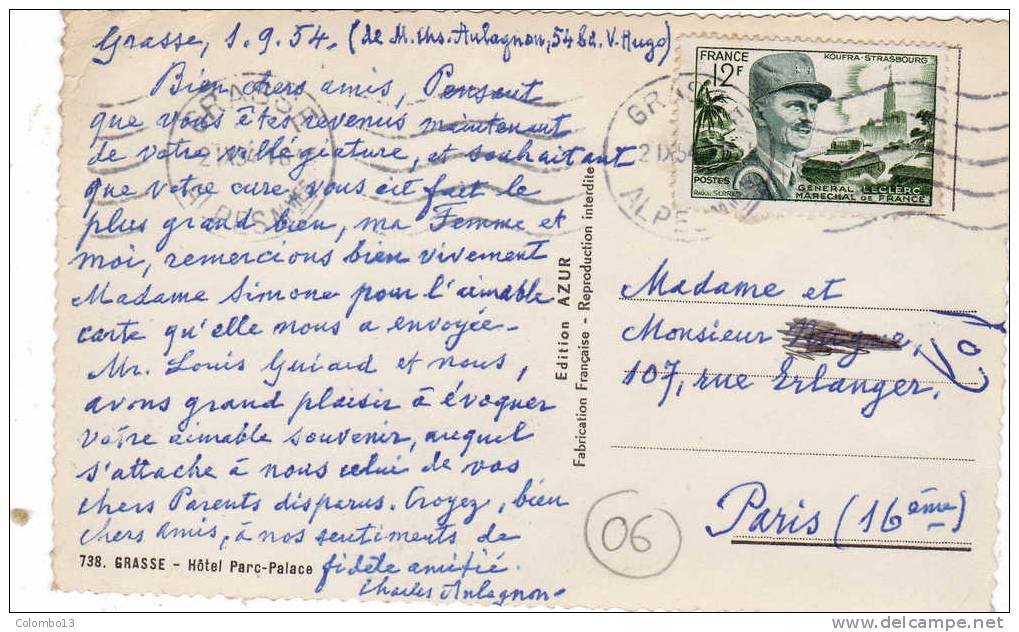 Grasse, 1.9.54. (de M. Chs. Aulagnon, 54 Bd. V. Hugo)
Bien chers amis, Pensant
que vous êtes revenus maintenant
de votre villégiature, et souhaitant
que votre cure vous ait fait le
plus grand bien, ma Femme et
moi, remercions bien vivement
Madame Simone pour l'aimable
carte qu'elle nous a envoyée -
Mr. Louis Guiard et nous,
avons grand plaisir à évoquer
votre aimable souvenir, auquel
s'attache à nous celui de vos
chers Parents disparus. Croyez, bien
chers amis, à nos sentiments de
fidèle amitié.
Charles Aulagnon -
738. GRASSE - Hôtel Parc-Palace
Edition AZUR
Fabrication Française - Reproduction interdite
FRANCE
12F
KOUFRA-STRASBOURG
POSTES
RAOUL SERRES
GÉNÉRAL LECLERC
MARÉCHAL DE FRANCE
GRASSE
2 IX 54
ALPES MMES
GRASSE
2 IX 54
ALPES MMES
Madame et
Monsieur
107, rue Erlanger.
Paris (16ème)
06
Colombo13
www.delcampe.net